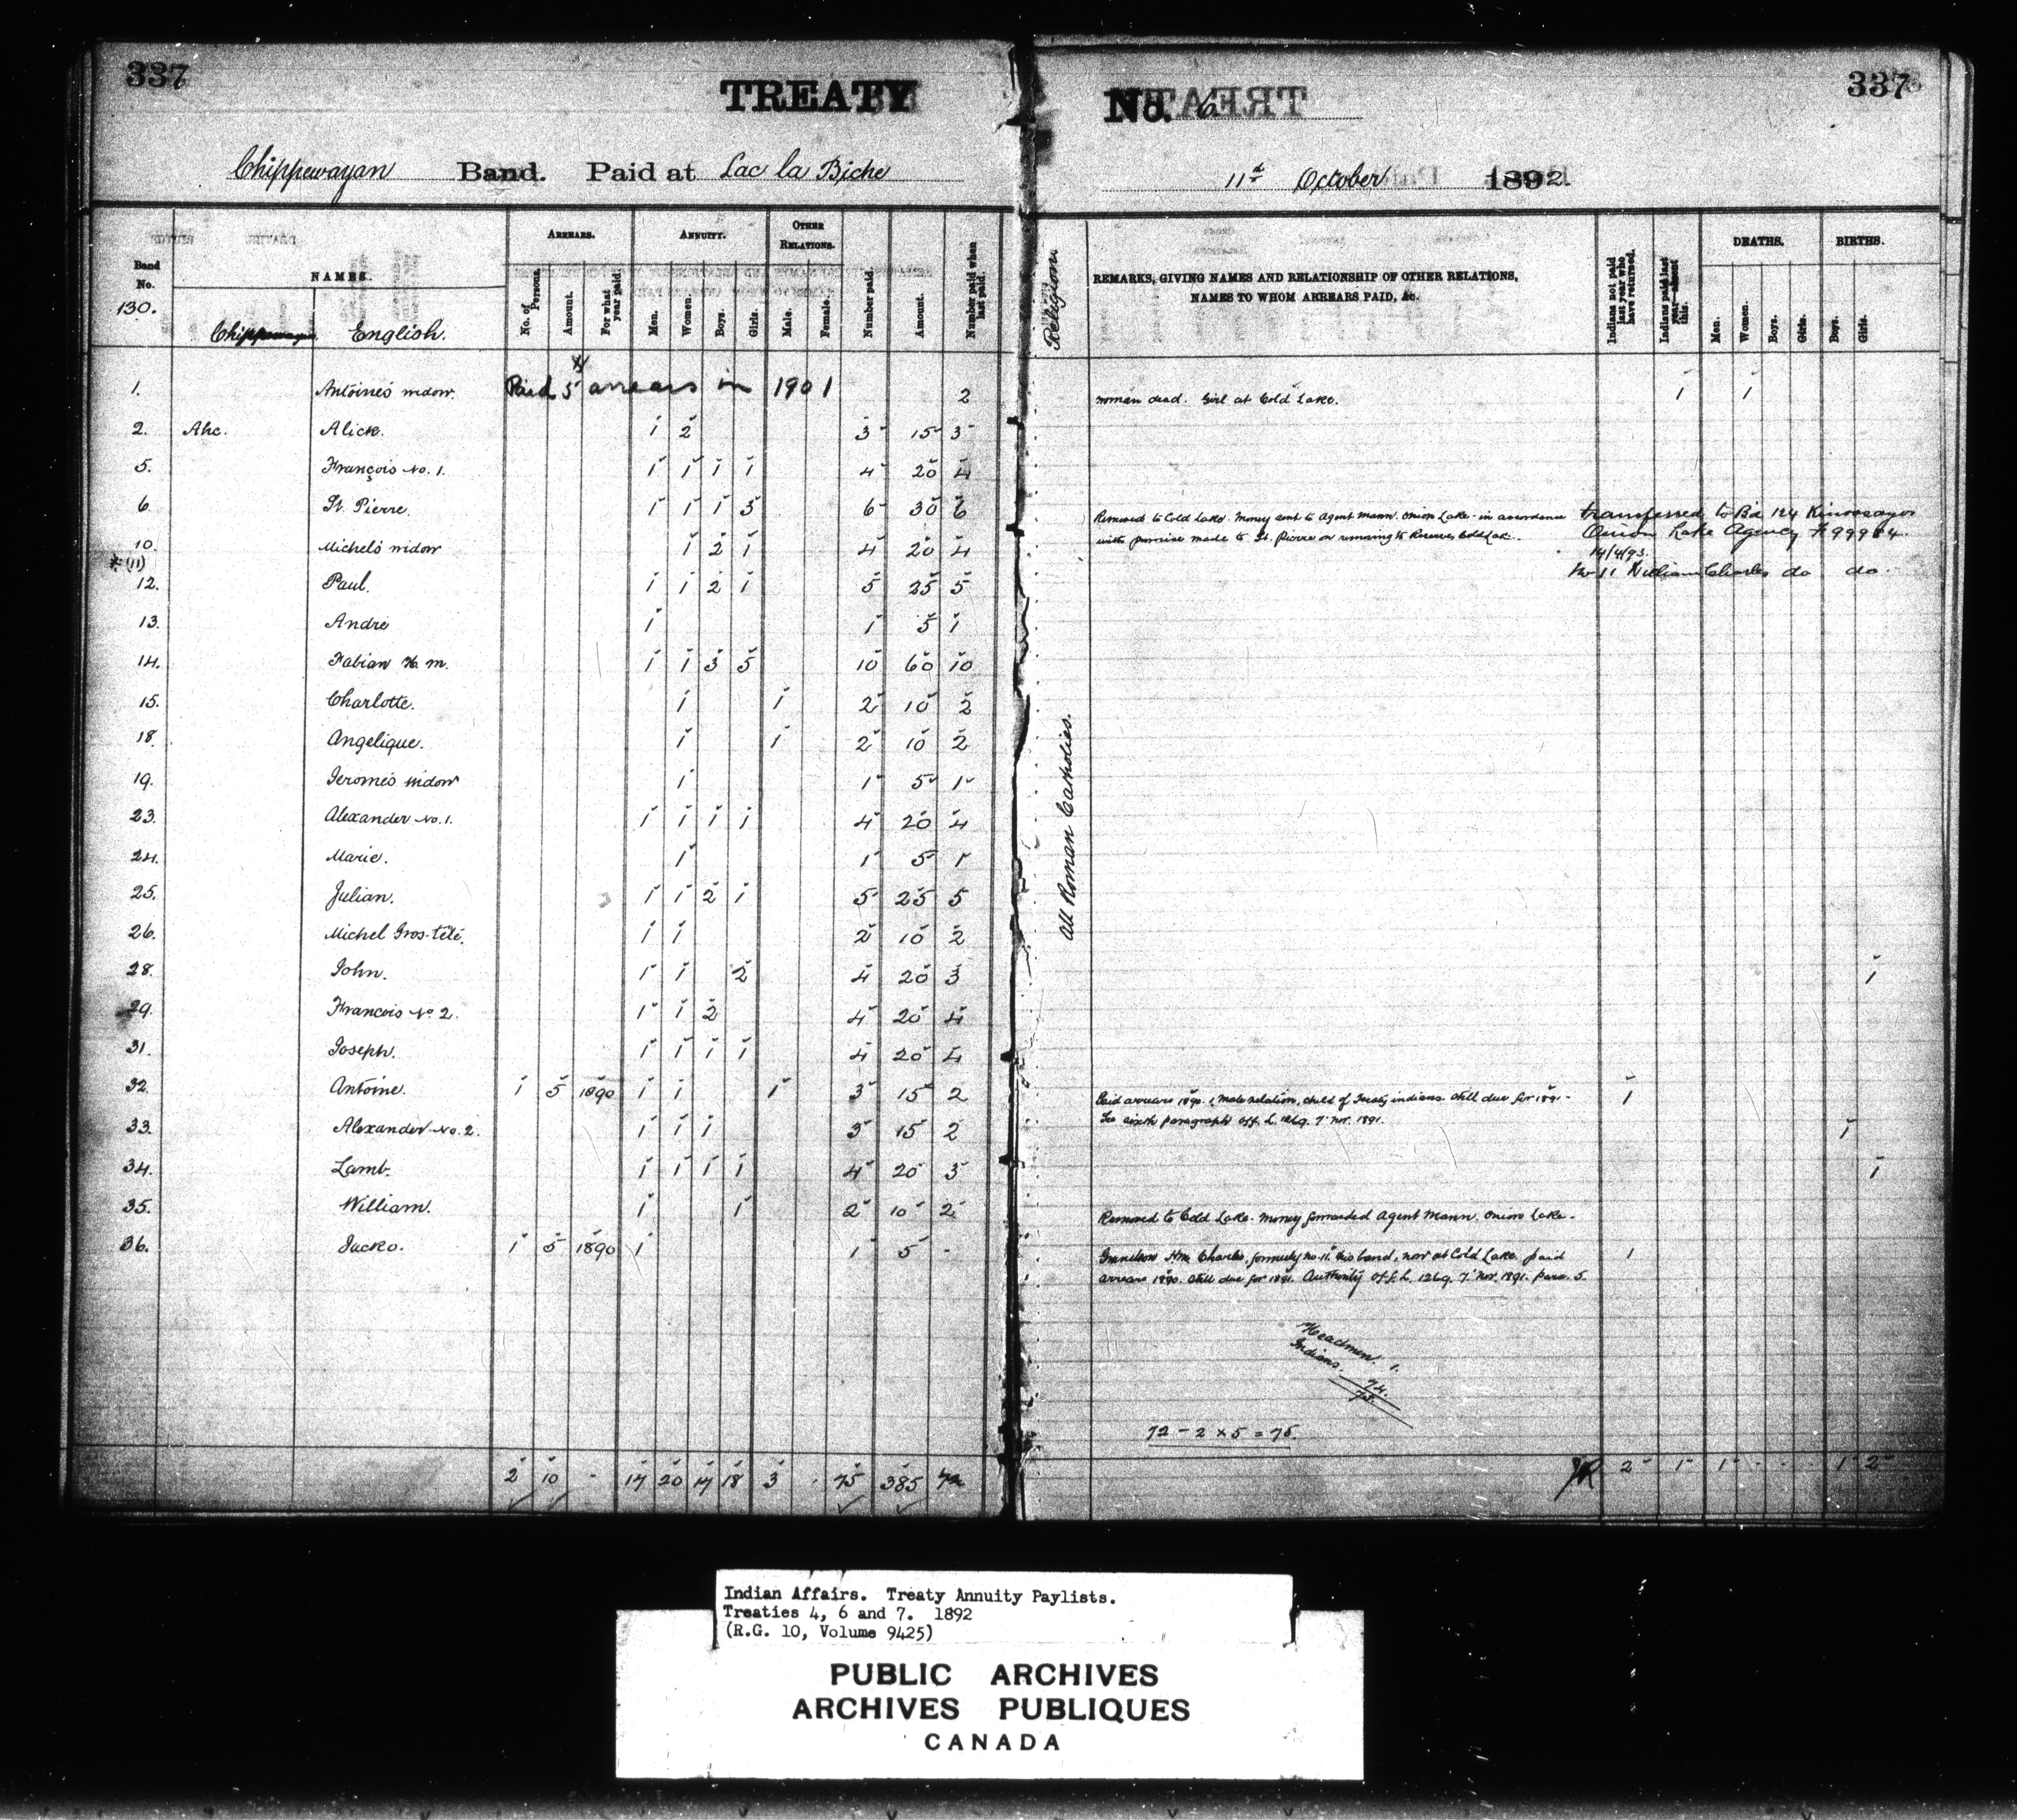 337
TREATY
No. 6
337
Chippewayan Band. Paid at Lac la Biche
11th October 1892.
Band No.
NAMES.
ARREARS.
ANNUITY.
OTHER RELATIONS.
No. of Persons.
Amount.
For what year paid.
Men.
Women.
Boys.
Girls.
Male.
Female.
Number paid.
Amount.
Number paid when last paid.
Religion.
REMARKS, GIVING NAMES AND RELATIONSHIP OF OTHER RELATIONS,
NAMES TO WHOM ARREARS PAID, &c.
Indians not paid last year who have returned.
Indians paid last year absent this.
DEATHS.
BIRTHS.
Men.
Women.
Boys.
Girls.
Boys.
Girls.
130.
English.
1. Antoine's widow. Paid 5 arrears in 1901 2 woman dead. Girl at Cold Lake. 1 1
2. Ahc. Alick. 1 2 3 15 3
5. François No. 1. 1 1 1 1 4 20 4
6. St. Pierre. 1 1 1 3 6 30 6 Removed to Cold Lake. Money sent to Agent Mann. Onion Lake - in accordance transferred to Bd 124 Kinoosayo
with promise made to St. Pierre on removing to Reserve, Cold Lake. Onion Lake Agency # 99984.
10. Michel's widow 1 2 1 4 20 4 14/4/93.
* (11) No 11 William Charles do do.
12. Paul. 1 1 2 1 5 25 5
13. Andre 1 1 5 1
14. Fabian H. m. 1 1 3 5 10 60 10
15. Charlotte. 1 1 2 10 2
18. Angelique. 1 1 2 10 2
19. Jerome's widow 1 1 5 1
23. Alexander No. 1. 1 1 1 1 4 20 4
24. Marie. 1 1 5 1
25. Julian. 1 1 2 1 5 25 5
26. Michel Gros-tête. 1 1 2 10 2
28. John. 1 1 2 4 20 3 1
29. Francois No 2. 1 1 2 4 20 4
31. Joseph. 1 1 1 1 4 20 4
32. Antoine. 1 5 1890 1 1 1 3 15 2 Paid arrears 1890. 1, male relation, child of Treaty indians. Still due for 1891 - 1
See sixth paragraph Off. L. 1269. 7 Nov. 1891.
33. Alexander No. 2. 1 1 1 3 15 2 1
34. Lamb. 1 1 1 1 4 20 3 1
35. William. 1 1 2 10 2 Removed to Cold Lake. Money forwarded Agent Mann. Onion Lake.
36. Jacko. 1 5 1890 1 1 5 - Grandson Wm Charles, formerly no. 11. this band, now at Cold Lake. paid 1
arrears 1890. Still due for 1891. Authority Off. L. 1269. 7 Nov. 1891. para. 5.
All Roman Catholics.
Headmen. 1.
Indians. 74.
75.
72 - 2 x 5 = 75.
2 10 - 17 20 17 18 3 . 75 385 72 2 1 1 - - - 1 2
Indian Affairs. Treaty Annuity Paylists.
Treaties 4, 6 and 7. 1892
(R.G. 10, Volume 9425)
PUBLIC ARCHIVES
ARCHIVES PUBLIQUES
CANADA